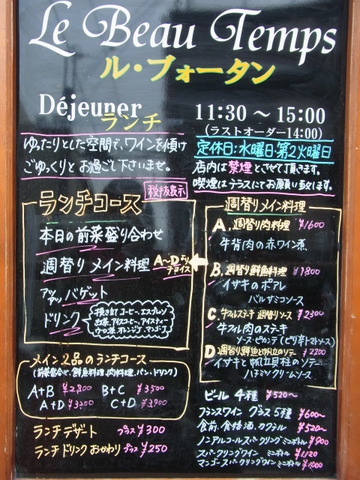 Le Beau Temps
ル・ブォータン
Déjeuner
ランチ
11:30 ～ 15:00
(ラストオーダー14:00)
ゆったりとした空間で、ワインを傾け
ごゆっくりとお過ごし下さいませ。
定休日:水曜日・第2火曜日
店内は禁煙とさせて頂きます。
喫煙はテラスにてお願い致します。
税抜表示
ランチコース
本日の前菜盛り合わせ
週替り メイン料理
A～Dから
チョイス
バゲット
ドリンク
挽き立てコーヒー、エスプレッソ
紅茶、アイスコーヒー、アイスティー
オレンジ、マンゴー
週替りメイン料理
A. 週替り肉料理 ¥1600
牛背肉の赤ワイン煮
B. 週替り鮮魚料理 ¥1800
イサキのポアレ
バルサミコソース
C. 牛フィレステーキ 週替りソース ¥2300
牛フィレ肉のステーキ
ソース・ピカンテ(ピリ辛トマトソース)
D 週替り鮮魚と帆立のソテー ¥2200
イサキと帆立貝柱のソテー
ハチミツクリームソース
メイン2品のランチコース
(前菜盛合せ、鮮魚料理、肉料理、パン、ドリンク)
A+B ¥2800 B+C ¥3500
A+D ¥3300 C+D ¥3900
ランチデザート プラス ¥300
ランチドリンクおかわり プラス ¥250
ビール 4種 ¥520～
フランスワイン グラス 5種 ¥600～
食前、食後酒、カクテル ¥520～
ノンアルコールスパークリング ミニボトル ¥900
スパークリングワイン ミニボトル ¥1120
マンゴースパークリングワイン ミニボトル ¥1000